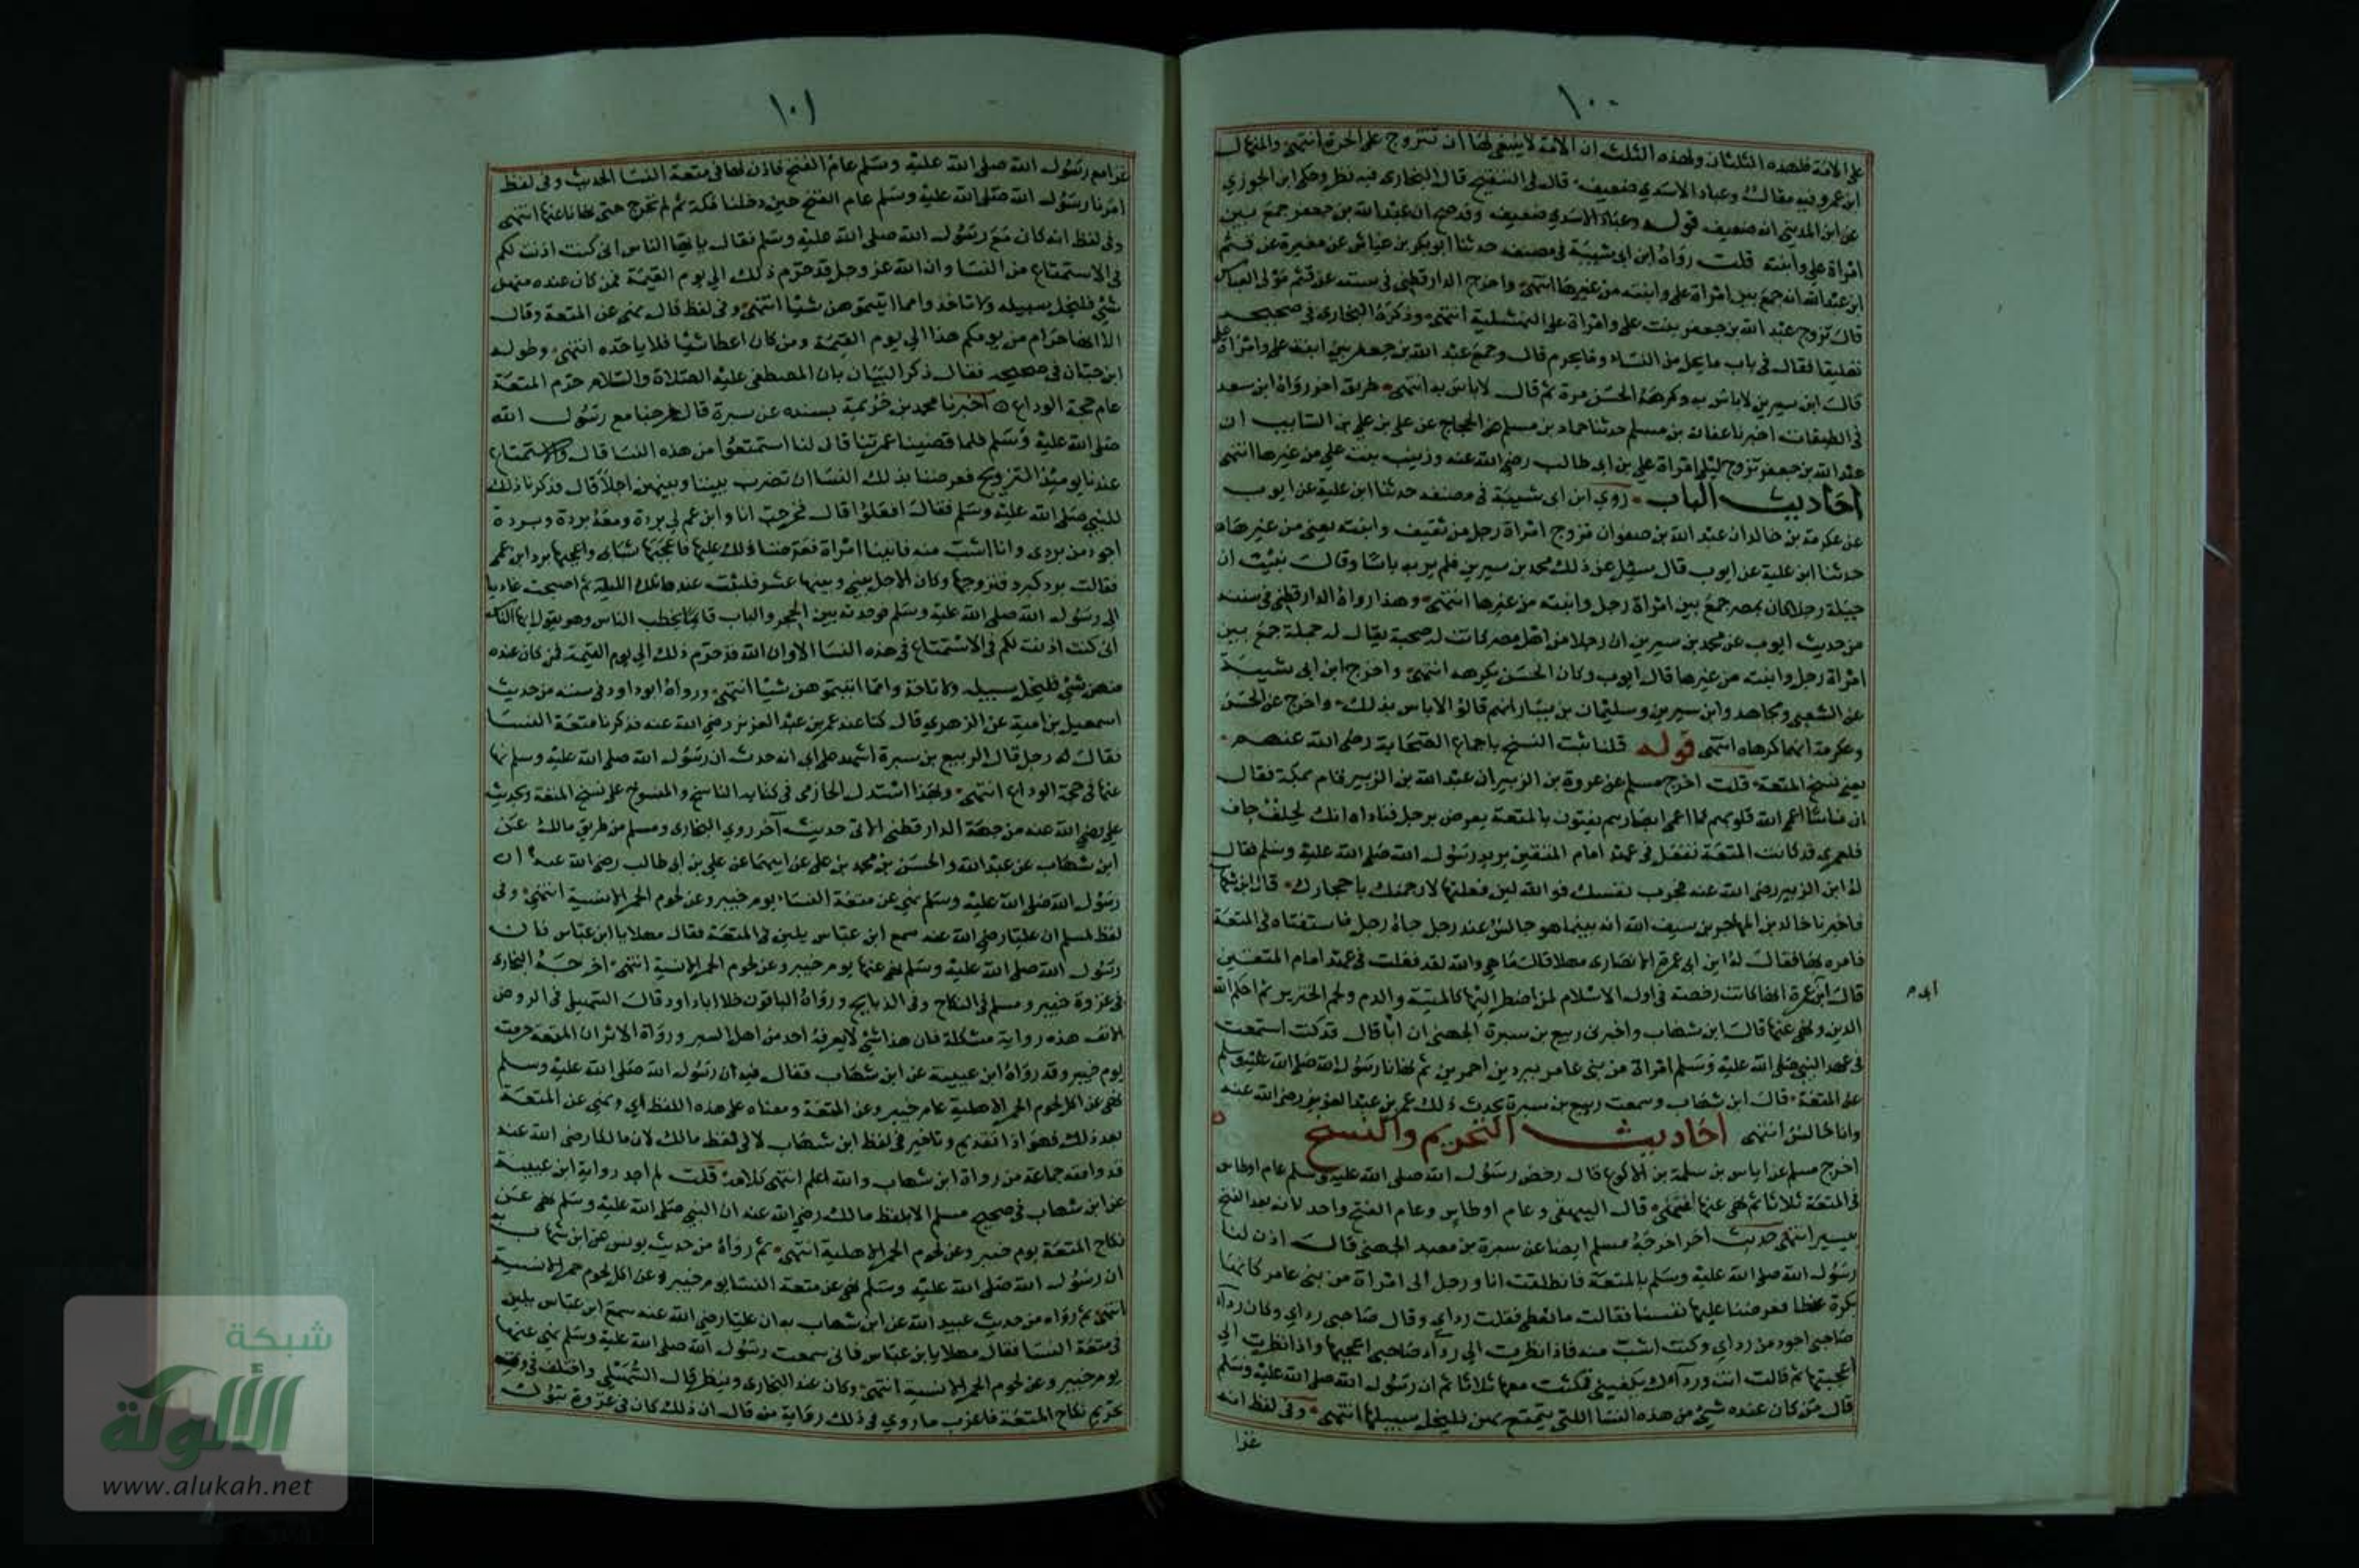 ١٠٠
على الامة فلهذه الثلثان ولهذه الثلث ان الامة لا ينبغي لها ان تتزوج على الحرة انتهى والمنهال
ابن عمرو فيه مقال وعباد الاسدي ضعيف قال في التنقيح قال البخاري فيه نظر وحكى ابن الجوزي
عن ابن المديني انه ضعيف قوله وعباد الاسدي ضعيف وقد صح ان عبد الله بن جعفر جمع بين
امراة علي وابنته قلت رواه ابن ابي شيبة في مصنفه حدثنا ابو بكر بن عياش عن مغيرة عن قثم
ابن عبد الله انه جمع بين امراة علي وابنته من غيرها انتهى واخرج الدارقطني في سننه عن قثم مولى العباس
قال تزوج عبد الله بن جعفر بنت علي وامراة علي النهشلية انتهى وذكره البخاري في صحيحه
تعليقا فقال في باب ما يحل من النساء وما يحرم قال وجمع عبد الله بن جعفر بين ابنة علي وامراة علي
قال ابن سيرين لا باس به وكرهه الحسن مرة ثم قال لا باس به انتهى طريق اخر رواه ابن سعد
في الطبقات اخبرنا عفان بن مسلم حدثنا حماد بن مسلم عن الحجاج عن علي بن علي بن السايب ان
عبد الله بن جعفر تزوج ليلى امراة علي بن ابي طالب رضي الله عنه وزينب بنت علي من غيرها انتهى
احاديث الباب روى ابن ابي شيبة في مصنفه حدثنا ابن علية عن ايوب
عن عكرمة بن خالد ان عبد الله بن صفوان تزوج امراة رجل من ثقيف وابنته يعني من غيرها
حدثنا ابن علية عن ايوب قال سئل عن ذلك محمد بن سيرين فلم ير به باسا وقال نبئت ان
جبلة رجل كان بمصر جمع بين امراة رجل وابنته من غيرها انتهى وهذا رواه الدارقطني في سننه
من حديث ايوب عن محمد بن سيرين ان رجلا من اهل مصر كانت له صحبة يقال له جبلة جمع بين
امراة رجل وابنته من غيرها قال ايوب وكان الحسن يكرهه انتهى واخرج ابن ابي شيبة
عن الشعبي ومجاهد وابن سيرين وسليمان بن يسار انهم قالوا لا باس بذلك واخرج عن الحسن
وعكرمة انهما كرهاه انتهى قوله قلنا ثبت النسخ باجماع الصحابة رضي الله عنهم
يعني نسخ المتعة قلت اخرج مسلم عن عروة بن الزبير ان عبد الله بن الزبير قام بمكة فقال
ان ناسا اعمى الله قلوبهم كما اعمى ابصارهم يفتون بالمتعة يعرض برجل فناداه انك لجلف جاف
فلعمري قد كانت المتعة تفعل في عهد امام المتقين يريد رسول الله صلى الله عليه وسلم فقال
له ابن الزبير رضي الله عنه فجرب نفسك فوالله لئن فعلتها لارجمنك باحجارك قال ابن شهاب
فاخبرنا خالد بن المهاجر بن سيف الله انه بينما هو جالس عند رجل جاه رجل فاستفتاه في المتعة
فامره بها فقال له ابن ابي عمرة الانصاري مهلا قال ما هي والله لقد فعلت في عهد امام المتقين
قال ابن عمرة انها كانت رخصة في اول الاسلام لمن اضطر اليها كالميتة والدم ولحم الخنزير ثم احكم الله
الدين ونهى عنها قال ابن شهاب واخبرني ربيع بن سبرة الجهني ان اباه قال قد كنت استمتعت
في عهد النبي صلى الله عليه وسلم امراة من بني عامر ببردين احمرين ثم نهانا رسول الله صلى الله عليه وسلم
عن المتعة قال ابن شهاب وسمعت ربيع بن سبرة يحدث ذلك عمر بن عبد العزيز رضي الله عنه
وانا جالس انتهى احاديث التحريم والنسخ
اخرج مسلم عن اياس بن سلمة بن الاكوع قال رخص رسول الله صلى الله عليه وسلم عام اوطاس
في المتعة ثلاثا ثم نهى عنها انتهى قال البيهقي وعام اوطاس وعام الفتح واحد لانه بعد الفتح
بيسير انتهى حديث اخر اخرجه مسلم ايضا عن سبرة بن معبد الجهني قال اذن لنا
رسول الله صلى الله عليه وسلم بالمتعة فانطلقت انا ورجل الى امراة من بني عامر كانها
بكرة عيطا فعرضنا عليها نفسنا فقالت ما تعطي فقلت رداي وقال صاحبي رداي وكان رداء
صاحبي اجود من رداي وكنت اشب منه فاذا نظرت الى رداء صاحبي اعجبها واذا نظرت الي
اعجبتها ثم قالت انت ورداءك يكفيني فمكثت معها ثلاثا ثم ان رسول الله صلى الله عليه وسلم
قال من كان عنده شيء من هذه النسا اللتي يتمتع بهن فليخل سبيلها انتهى وفي لفظ انه
غزا
١٠١
غزا مع رسول الله صلى الله عليه وسلم عام الفتح فاذن لها في متعة النسا الحديث وفي لفظ
امرنا رسول الله صلى الله عليه وسلم عام الفتح حين دخلنا مكة ثم لم نخرج حتى نهانا عنها انتهى
وفي لفظ انه كان مع رسول الله صلى الله عليه وسلم فقال يا ايها الناس اني كنت اذنت لكم
في الاستمتاع من النسا وان الله عز وجل قد حرم ذلك الى يوم القيمة فمن كان عنده منهن
شيء فليخل سبيله ولا تاخذوا مما اتيتموهن شيا انتهى وفي لفظ قال نهى عن المتعة وقال
الا انها حرام من يومكم هذا الى يوم القيمة ومن كان اعطا شيا فلا ياخذه انتهى وطوله
ابن حبان في صحيحه فقال ذكر البيان بان المصطفى عليه الصلاة والسلام حرم المتعة
عام حجة الوداع اخبرنا محمد بن خزيمة بسنده عن سبرة قال خرجنا مع رسول الله
صلى الله عليه وسلم فلما قضينا عمرتنا قال لنا استمتعوا من هذه النسا قال والاستمتاع
عندنا يوميذ التزويج فعرضنا بذلك النسا ان تضرب بيننا وبينهن اجلا قال فذكرنا ذلك
للنبي صلى الله عليه وسلم فقال افعلوا قال فخرجت انا وابن عم لي بردة ومعه بردة وبردة
اجود من بردي وانا اشب منه فاتينا امراة فعرضنا ذلك عليها فاعجبها شبابي واعجبها برد ابن عمي
فقالت برد كبرد فتزوجتها وكان الاجل بيني وبينها عشر فلبثت عندها تلك الليلة ثم اصبحت غاديا
الى رسول الله صلى الله عليه وسلم فوجدته بين الحجر والباب قائما يخطب الناس وهو يقول ايها الناس
اني كنت اذنت لكم في الاستمتاع في هذه النسا الا وان الله قد حرم ذلك الى يوم القيمة فمن كان عنده
منهن شيء فليخل سبيله ولا تاخذوا مما اتيتموهن شيا انتهى ورواه ابو داود في سننه من حديث
اسمعيل بن امية عن الزهري قال كنا عند عمر بن عبد العزيز رضي الله عنه فذكرنا متعة النسا
فقال له رجل قال الربيع بن سبرة اشهد على ابي انه حدث ان رسول الله صلى الله عليه وسلم نها
عنها في حجة الوداع انتهى وبهذا استدل الحازمي في كتابه الناسخ والمنسوخ على نسخ المتعة وبحديث
علي رضي الله عنه من جهة الدارقطني الاتي حديث آخر روى البخاري ومسلم من طريق مالك عن
ابن شهاب عن عبد الله والحسن بن محمد بن علي عن ابيهما عن علي بن ابي طالب رضي الله عنه ان
رسول الله صلى الله عليه وسلم نهى عن متعة النساء يوم خيبر وعن لحوم الحمر الانسية انتهى وفي
لفظ لمسلم ان عليا رضي الله عنه سمع ابن عباس يلين في المتعة فقال مهلا يا ابن عباس فان
رسول الله صلى الله عليه وسلم نهى عنها يوم خيبر وعن لحوم الحمر الانسية انتهى اخرجه البخاري
في غزوة خيبر ومسلم في النكاح وفي الذبايح ورواه الباقون خلا ابا داود قال السهيلي في الروض
الانف هذه رواية مشكلة فان هذا شيء لا يعرفه احد من اهل السير ورواة الاثر ان المتعة حرمت
يوم خيبر وقد رواه ابن عيينة عن ابن شهاب فقال فيه ان رسول الله صلى الله عليه وسلم
نهى عن اكل لحوم الحمر الاهلية عام خيبر وعن المتعة ومعناه على هذه اللفظ اي ونهى عن المتعة
بعد ذلك فهو اذا تقديم وتاخير في لفظ ابن شهاب لا في لفظ مالك لان مالكا رضي الله عنه
قد وافقه جماعة من رواة ابن شهاب والله اعلم انتهى كلامه قلت لم اجد رواية ابن عيينة
عن ابن شهاب في صحيح مسلم الا بلفظ مالك رضي الله عنه ان النبي صلى الله عليه وسلم نهى عن
نكاح المتعة يوم خيبر وعن لحوم الحمر الاهلية انتهى ثم رواه من حديث يونس عن ابن شهاب به
ان رسول الله صلى الله عليه وسلم نهى عن متعة النسا يوم خيبر وعن اكل لحوم حمر الانسية
انتهى ثم رواه من حديث عبيد الله عن ابن شهاب به ان عليا رضي الله عنه سمع ابن عباس يلين
في متعة النسا فقال مهلا يا بن عباس فاني سمعت رسول الله صلى الله عليه وسلم نهى عنها
يوم خيبر وعن لحوم الحمر الانسية انتهى وكان عند البخاري وينظر قال السهيلي واختلف في وقت
تحريم نكاح المتعة فاغرب ما روي في ذلك رواية من قال ان ذلك كان في غزوة تبوك
شبكة
الألوكة
www.alukah.net